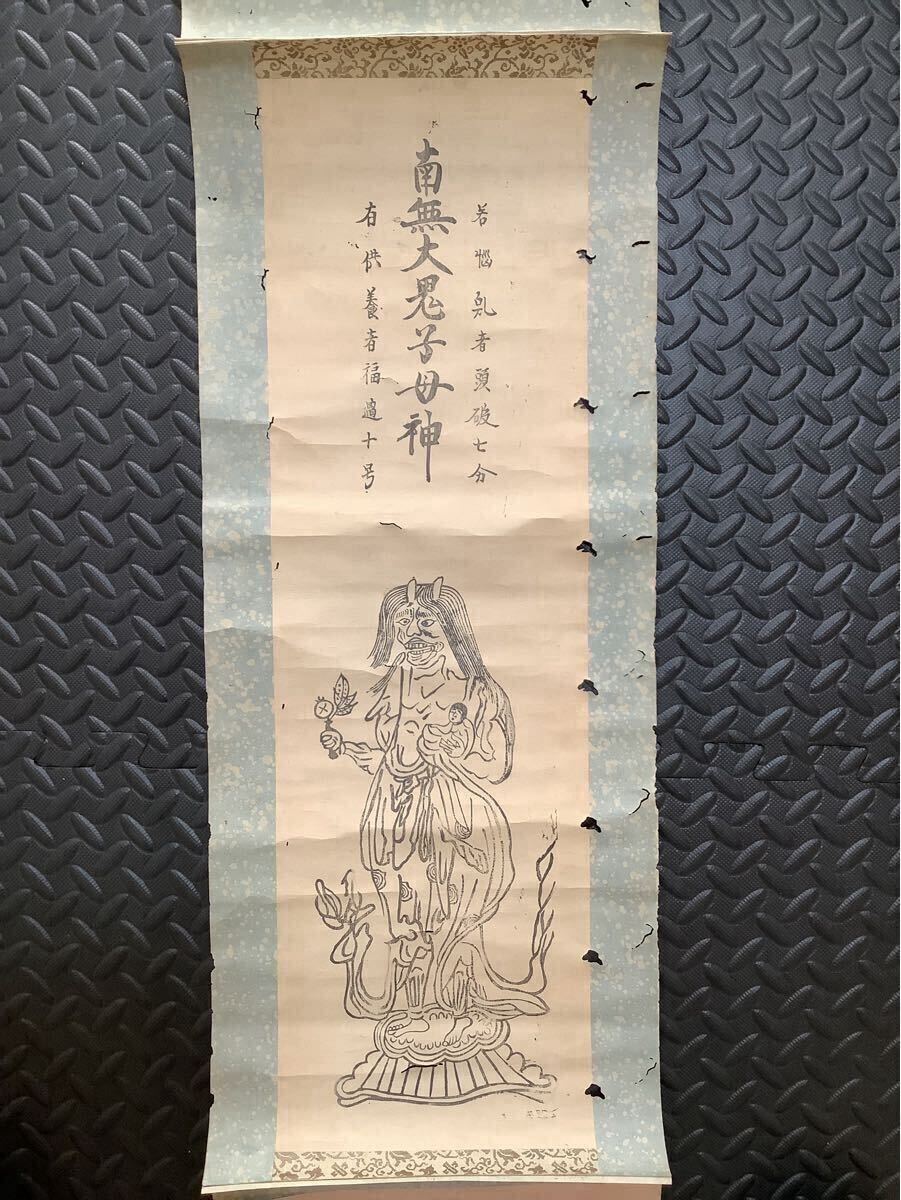 若惱乱者頭破七分
南無大鬼子母神
有供養者福過十号